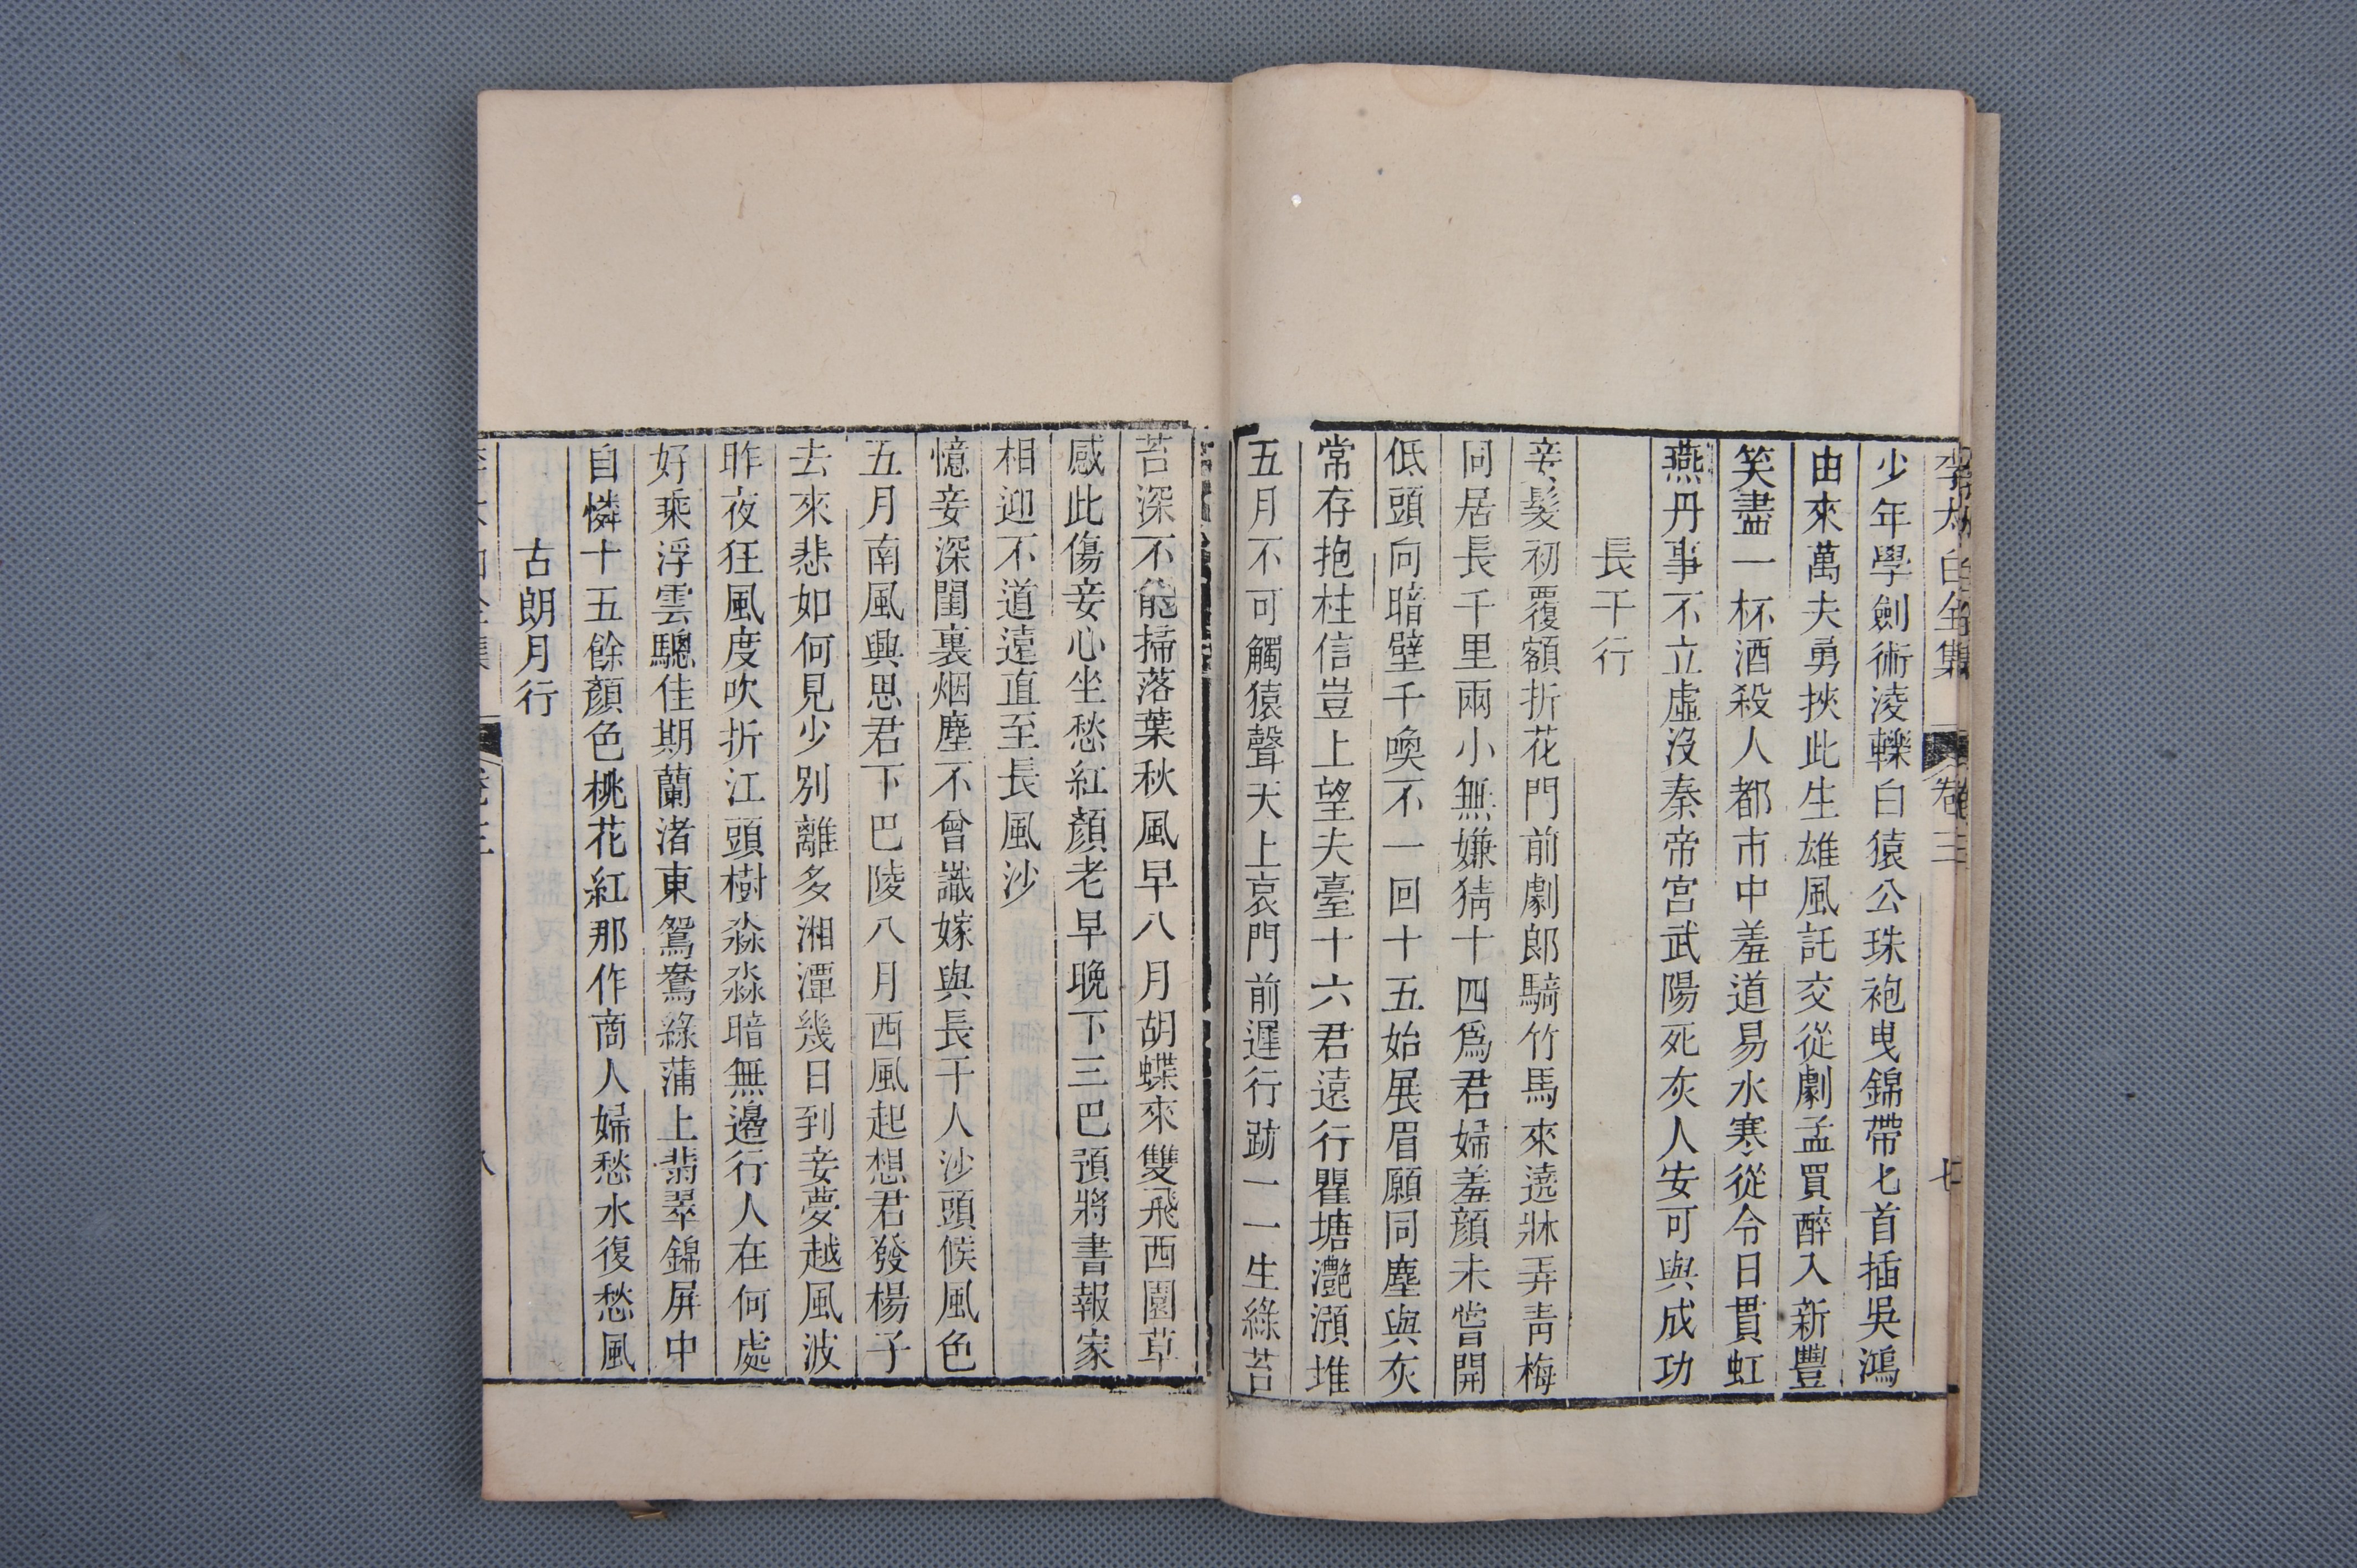 李太白全集 卷三 七
少年學劍術淩轢白猿公珠袍曳錦帶匕首插吳鴻
由來萬夫勇挾此生雄風託交從劇孟買醉入新豐
笑盡一杯酒殺人都市中羞道易水寒從令日貫虹
燕丹事不立虛沒秦帝宮武陽死灰人安可與成功
長干行
妾髮初覆額折花門前劇郎騎竹馬來遶牀弄青梅
同居長千里兩小無嫌猜十四爲君婦羞顏未嘗開
低頭向暗壁千喚不一回十五始展眉願同塵與灰
常存抱柱信豈上望夫臺十六君遠行瞿塘灔澦堆
五月不可觸猿聲天上哀門前遲行跡一一生綠苔
苔深不能掃落葉秋風早八月胡蝶來雙飛西園草
感此傷妾心坐愁紅顏老早晚下三巴預將書報家
相迎不道遠直至長風沙
憶妾深閨裏烟塵不曾識嫁與長干人沙頭候風色
五月南風興思君下巴陵八月西風起想君發楊子
去來悲如何見少別離多湘潭幾日到妾夢越風波
昨夜狂風度吹折江頭樹淼淼暗無邊行人在何處
好乘浮雲驄佳期蘭渚東鴛鴦綠蒲上翡翠錦屏中
自憐十五餘顏色桃花紅那作商人婦愁水復愁風
古朗月行